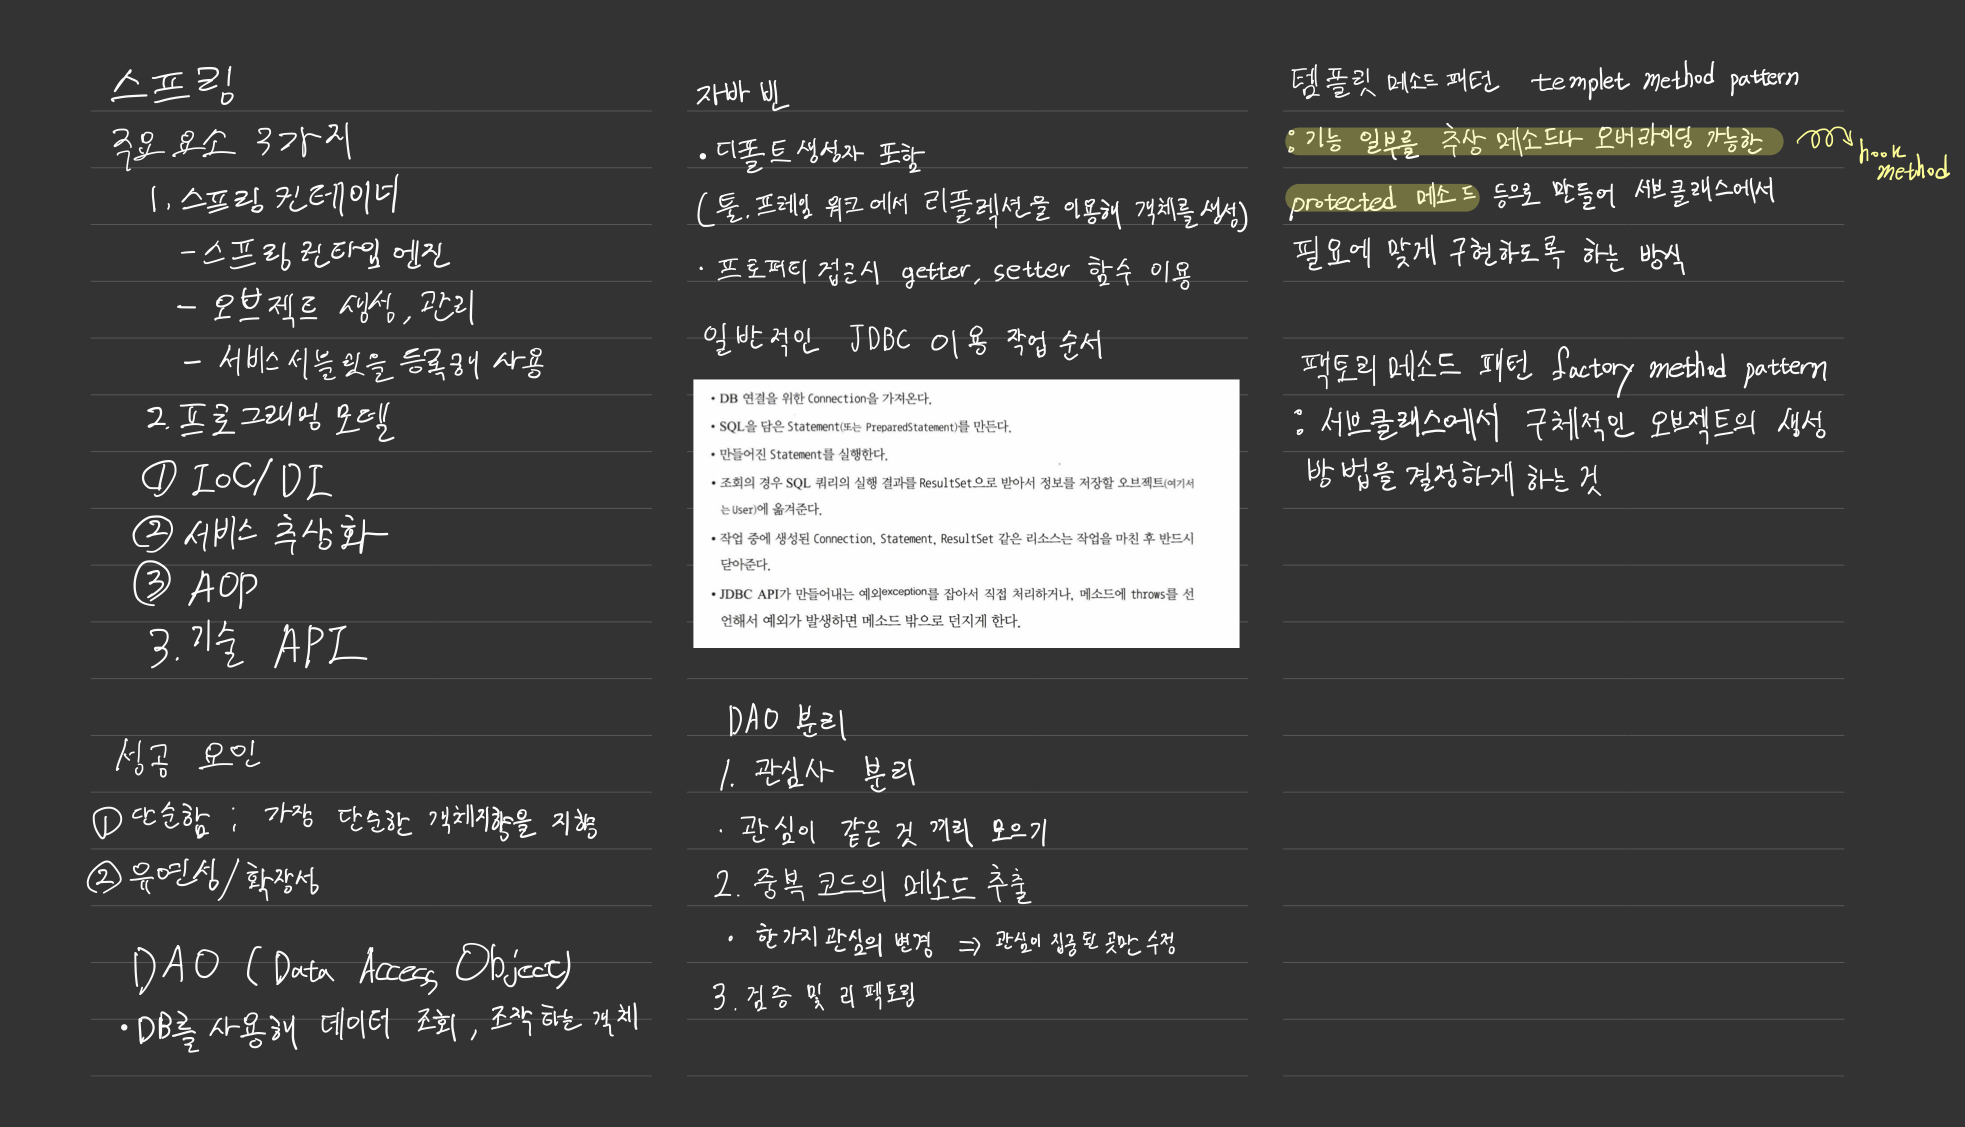 스프링
주요 요소 3가지
1. 스프링 컨테이너
- 스프링 런타임 엔진
- 오브젝트 생성, 관리
- 서비스 서블릿을 등록해 사용
2. 프로그래밍 모델
① IoC/DI
② 서비스 추상화
③ AOP
3. 기술 API
성공 요인
① 단순함 ; 가장 단순한 객체지향을 지향
② 유연성/확장성
DAO (Data Access Object)
• DB를 사용해 데이터 조회, 조작하는 객체
자바 빈
• 디폴트 생성자 포함
(툴. 프레임 워크에서 리플렉션을 이용해 객체를 생성)
· 프로퍼티 접근시 getter, setter 함수 이용
일반적인 JDBC 이용 작업 순서
• DB 연결을 위한 Connection을 가져온다.
• SQL을 담은 Statement(또는 PreparedStatement)를 만든다.
• 만들어진 Statement를 실행한다.
• 조회의 경우 SQL 쿼리의 실행 결과를 ResultSet으로 받아서 정보를 저장할 오브젝트(여기서
는 User)에 옮겨준다.
• 작업 중에 생성된 Connection, Statement, ResultSet 같은 리소스는 작업을 마친 후 반드시
닫아준다.
• JDBC API가 만들어내는 예외exception를 잡아서 직접 처리하거나, 메소드에 throws를 선
언해서 예외가 발생하면 메소드 밖으로 던지게 한다.
DAO 분리
1. 관심사 분리
· 관심이 같은 것 끼리 모으기
2. 중복 코드의 메소드 추출
• 한가지 관심의 변경 ⇒ 관심이 집중된 곳만 수정
3. 검증 및 리팩토링
템플릿 메소드 패턴 templet method pattern
: 기능 일부를 추상 메소드나 오버라이딩 가능한
hook
method
protected 메소드 등으로 만들어 서브클래스에서
필요에 맞게 구현하도록 하는 방식
팩토리 메소드 패턴 factory method pattern
: 서브클래스에서 구체적인 오브젝트의 생성
방법을 결정하게 하는 것